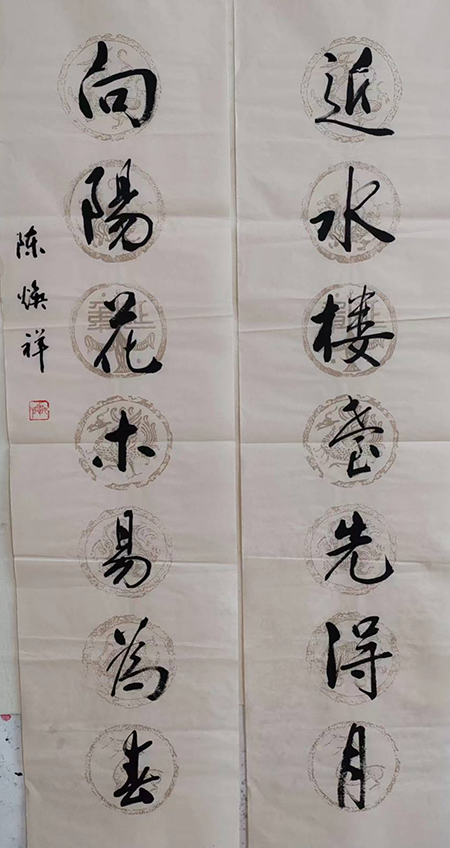 近水楼台先得月
向陽花木易為春
陈焕祥